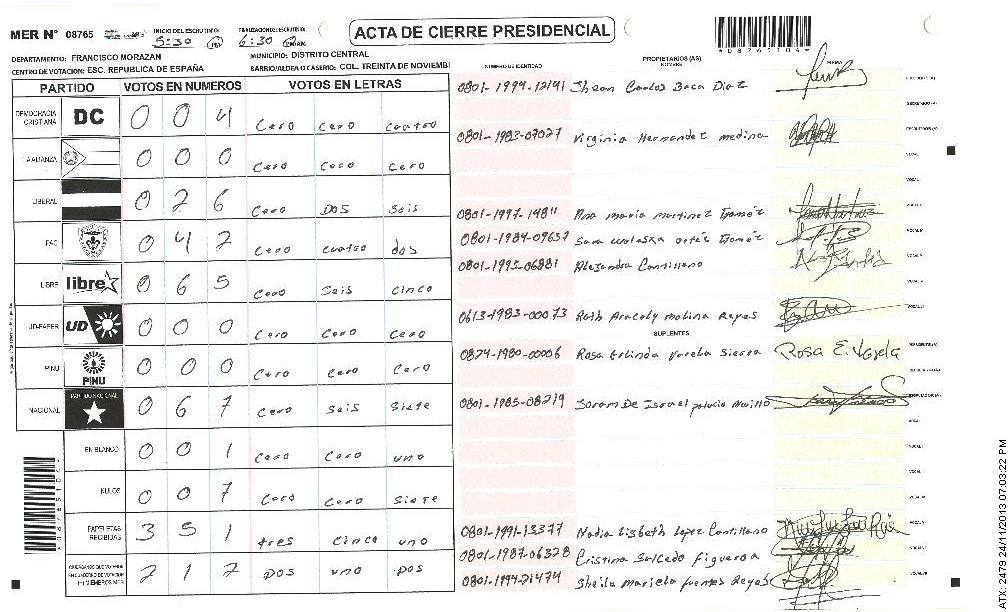 MER N° 08765 INICIO DEL ESCRUTINIO: 5:30 FINALIZACION ESCRUTINIO: 6:30
ACTA DE CIERRE PRESIDENCIAL
DEPARTAMENTO: FRANCISCO MORAZAN MUNICIPIO: DISTRITO CENTRAL
CENTRO DE VOTACION: ESC. REPUBLICA DE ESPAÑA BARRIO/ALDEA O CASERIO: COL. TREINTA DE NOVIEMB
PARTIDO VOTOS EN NUMEROS VOTOS EN LETRAS
DEMOCRACIA CRISTIANA DC 0 0 4 Cero Cero Cuatro
0 0 0 Cero Cero Cero
LIBERAL 0 2 6 Cero Dos Seis
PAC 0 4 2 Cero Cuatro dos
LIBRE libre 0 6 5 Cero Seis Cinco
UD-FAPER UD 0 0 0 Cero Cero Cero
PINU PINU 0 0 0 Cero Cero Cero
NACIONAL PARTIDO NACIONAL 0 6 7 Cero Seis Siete
EN BLANCO 0 0 1 Cero Cero uno
NULOS 0 0 7 Cero Cero Siete
PAPELETAS RECIBIDAS 3 5 1 tres Cinco uno
2 1 2 Dos uno Dos
NUMERO DE IDENTIDAD PROPIETARIOS (AS) NOMBRE FIRMA
0801-1994-12141 Jhean Carlos Baca Diaz
0801-1983-07027 Virginia Hernandez medina
0801-1997-14811 Ana maria martinez Gomez
0801-1984-09637 Sara Waleska ortéz Gomez
0801-1993-06881 Alejandra Cantillano
0613-1983-00073 Ruth Aracely molina Reyes
SUPLENTES
0824-1980-00006 Rosa Erlinda Varela Sierra Rosa E. Varela
0801-1985-08219 Israel
0801-1991-13377 Nadia Lisbeth Lopez Cantillano
0801-1987-06328 Cristina Salcedo figueroa
0801-1994-21474 Sheila Mariela fuentes Reyes
ATX 2479 24/11/2013 07:03:22 PM